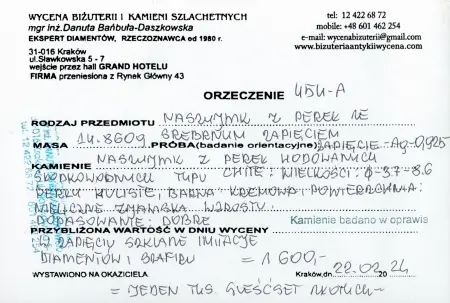 WYCENA BIŻUTERII I KAMIENI SZLACHETNYCH
mgr inż.Danuta Bańbuła-Daszkowska
EKSPERT DIAMENTÓW, RZECZOZNAWCA od 1980 r.
31-016 Kraków
ul.Sławkowska 5 - 7
wejście przez hall GRAND HOTELU
FIRMA przeniesiona z Rynek Główny 43
tel: 12 422 68 72
mobile: +48 601 462 254
e-mail: wycenabizuterii@gmail.com
www.bizuteriaantykiiwycena.com
ORZECZENIE 454-A
RODZAJ PRZEDMIOTU NASZYJNIK Z PEREŁ ZE
SREBRNYM ZAPIĘCIEM
MASA 14.860g PRÓBA(badanie orientacyjne) ZAPIĘCIE-Ag-0,925
KAMIENIE NASZYJNIK Z PEREŁ HODOWANYCH
SŁODKOWODNYCH TYPU WIELKOŚCI: 8.6
PERŁY KULISTE; BARWA KREMOWA; POWIERZCHNIA:
NIELICZNE ZNAMIONA WZROSTU.
DOPASOWANIE: DOBRE Kamienie badano w oprawie
PRZYBLIŻONA WARTOŚĆ W DNIU WYCENY
W ZAPIĘCIU SZKLANE IMITACJE
DIAMENTÓW I SZAFIRU = 1 600,-
WYSTAWIONO NA OKAZICIELA. Kraków,dn. 22.02.2024
= JEDEN TYS. SZEŚĆSET ZŁOTYCH-